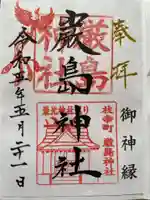 奉拝
御神縁
枝幸町
厳島神社
巌島神社
令和五年五月二十一日